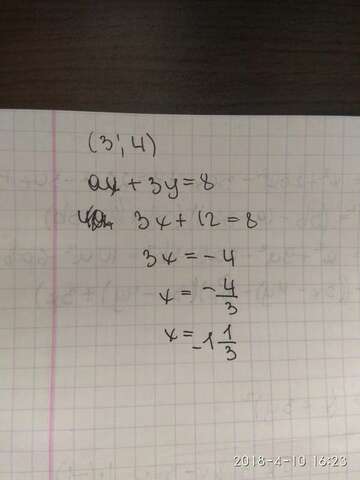 (3; 4)
ax + 3y = 8
3x + 12 = 8
3x = - 4
x = - 4/3
x = -1 1/3
2018-4-10 16:23